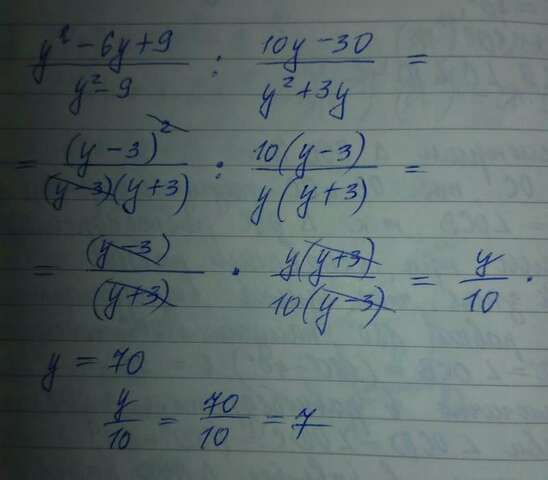 (y² - 6y + 9)/(y² - 9) : (10y - 30)/(y² + 3y) =
= (y - 3)²/((y - 3)(y + 3)) : 10(y - 3)/(y(y + 3)) =
= (y - 3)/(y + 3) · y(y + 3)/(10(y - 3)) = y/10 .
y = 70
y/10 = 70/10 = 7